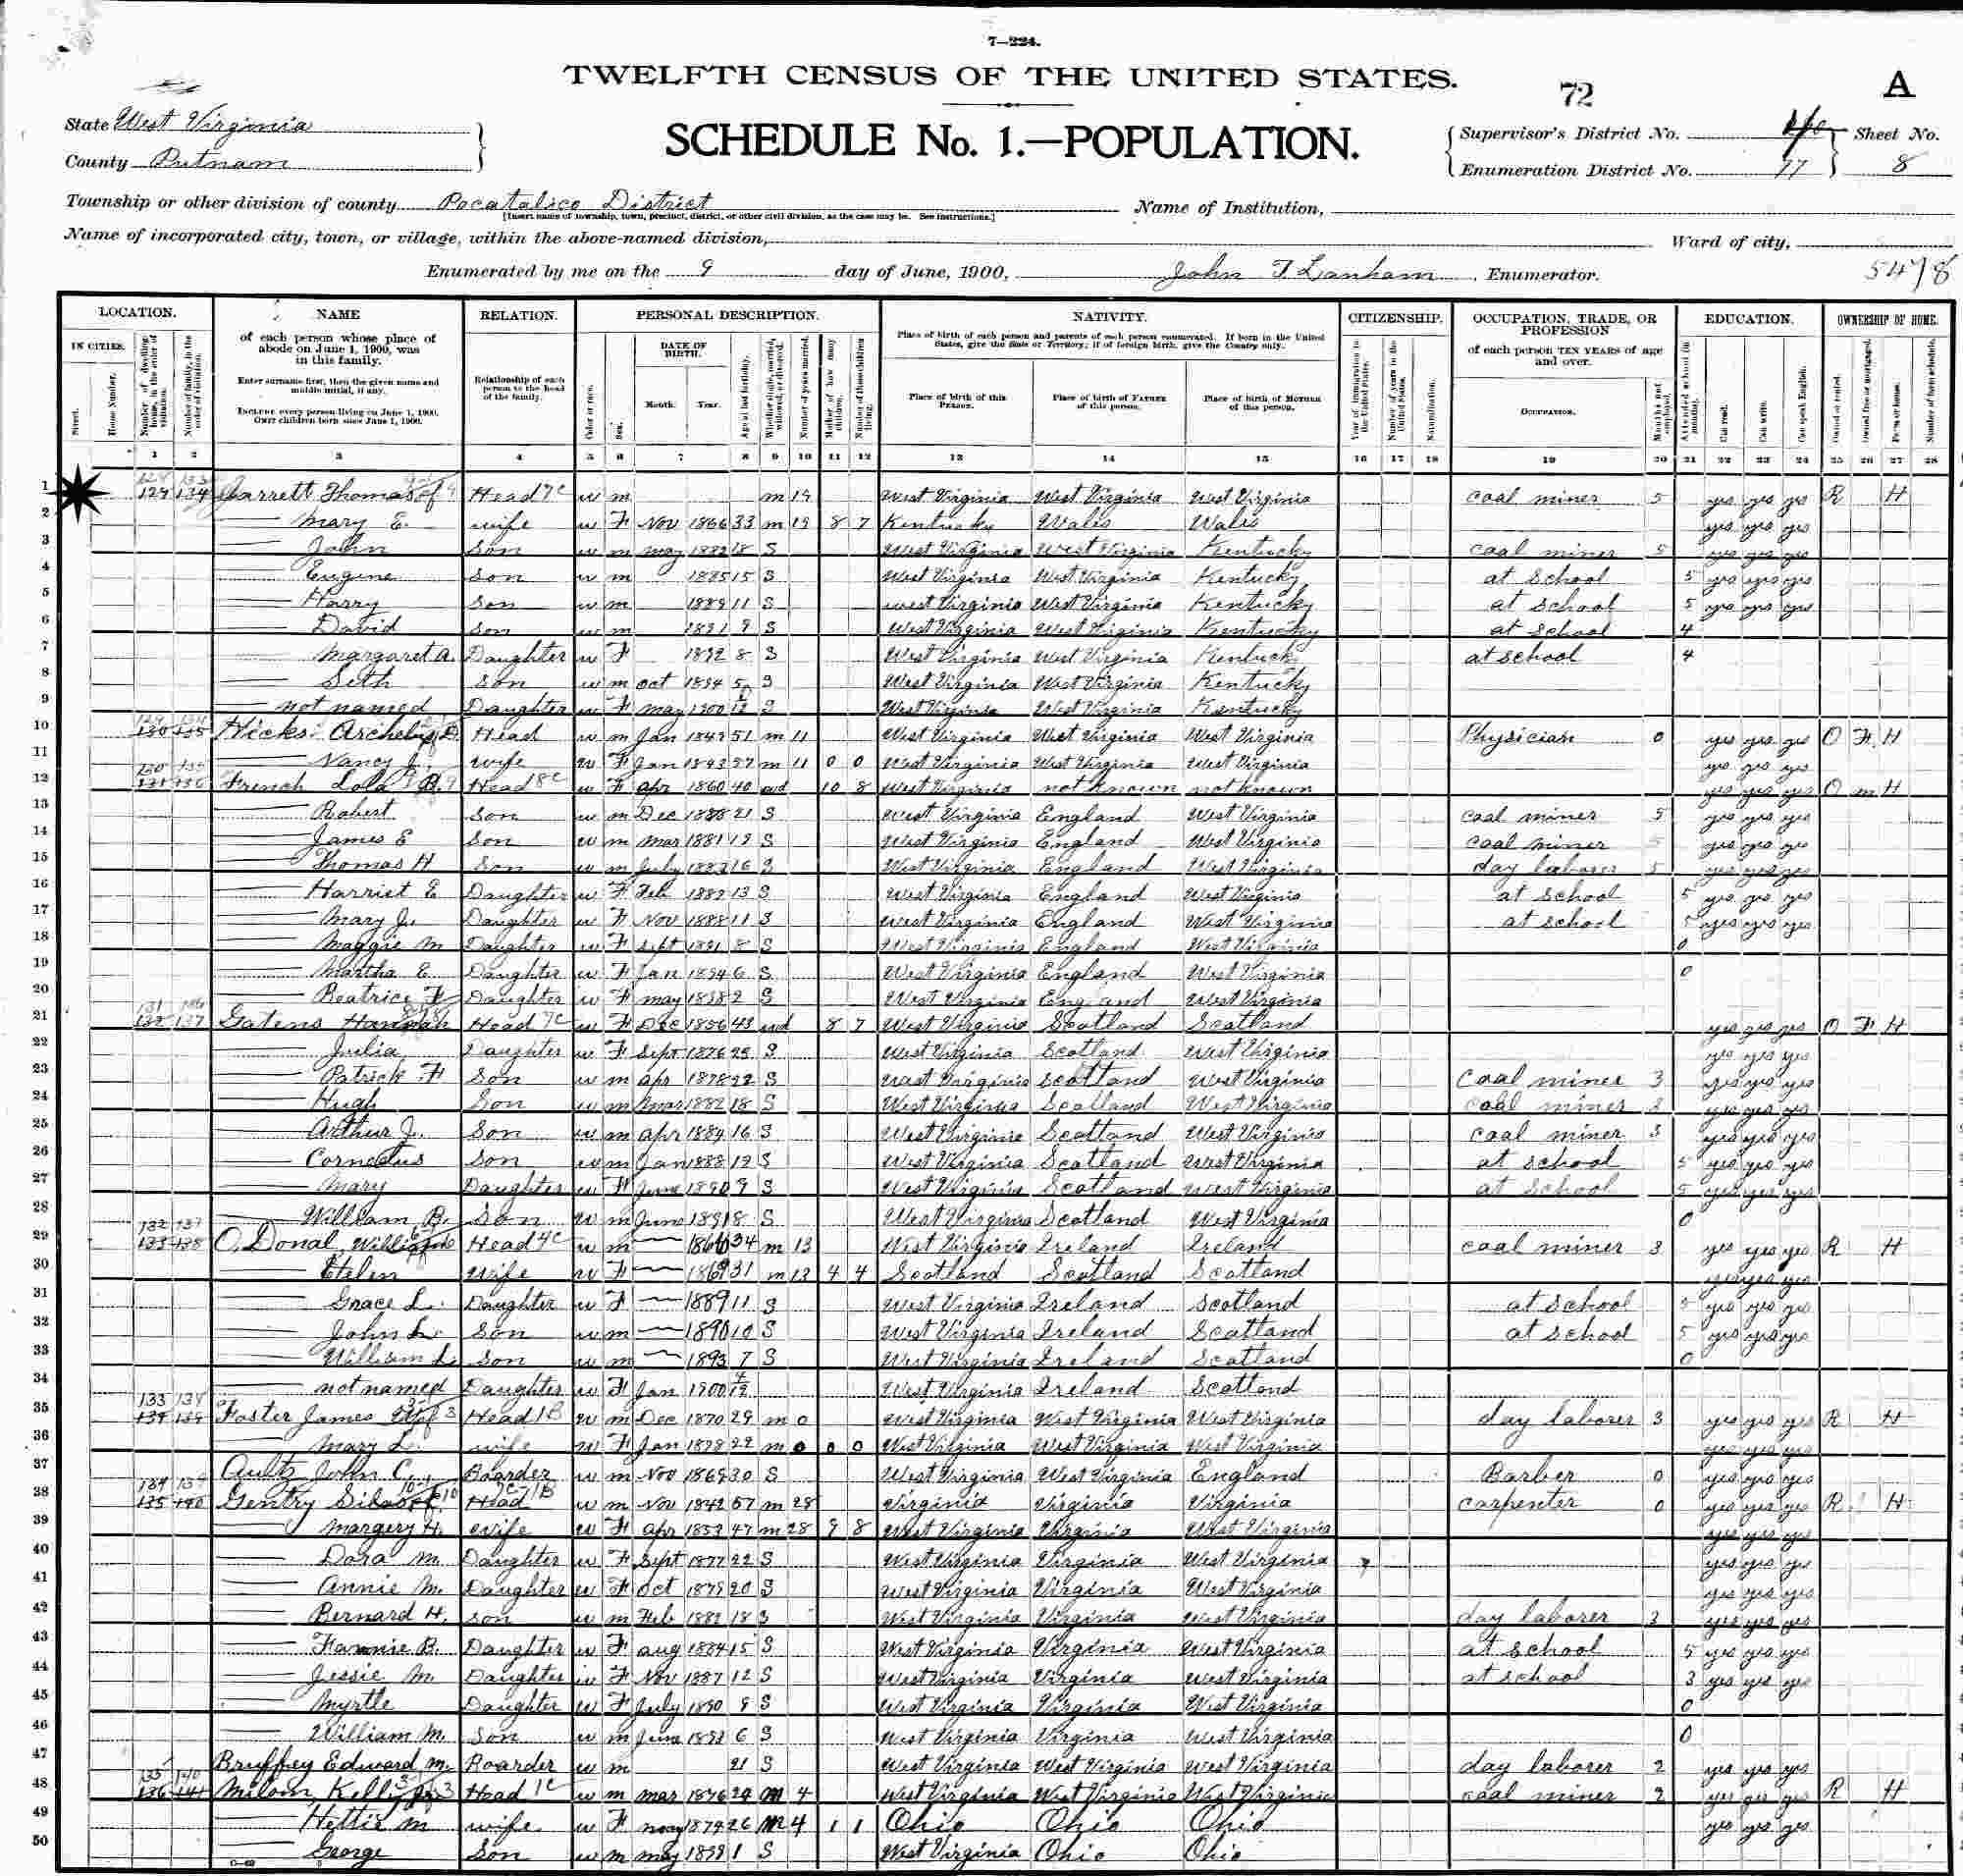 7—224.
TWELFTH CENSUS OF THE UNITED STATES.
72
A
State West Virginia
County Putnam
SCHEDULE No. 1.—POPULATION.
Supervisor's District No. Sheet No.
Enumeration District No. 77 8
Township or other division of county Pocatalico District Name of Institution,
[Insert name of township, town, precinct, district, or other civil division, as the case may be. See instructions.]
Name of incorporated city, town, or village, within the above-named division, Ward of city,
Enumerated by me on the 9 day of June, 1900, John T. Lanham, Enumerator. 5478
LOCATION. NAME RELATION. PERSONAL DESCRIPTION. NATIVITY. CITIZENSHIP. OCCUPATION, TRADE, OR PROFESSION EDUCATION. OWNERSHIP OF HOME.
IN CITIES. of each person whose place of abode on June 1, 1900, was in this family. DATE OF BIRTH. Place of birth of each person and parents of each person enumerated. If born in the United States, give the State or Territory; if of foreign birth, give the Country only. of each person TEN YEARS of age and over.
Enter surname first, then the given name and middle initial, if any. Relationship of each person to the head of the family. Month. Year. Place of birth of this PERSON. Place of birth of FATHER of this person. Place of birth of MOTHER of this person. OCCUPATION.
INCLUDE every person living on June 1, 1900. OMIT children born since June 1, 1900.
1 2 3 4 5 6 7 8 9 10 11 12 13 14 15 16 17 18 19 20 21 22 23 24 25 26 27 28
1 129 134 Jarrett Thomas Head w m m 19 West Virginia West Virginia West Virginia coal miner 5 yes yes yes R H
2 Mary E. wife w F Nov 1866 33 m 19 8 7 Kentucky Wales Wales yes yes yes
3 John Son w m may 1882 18 S West Virginia West Virginia Kentucky coal miner 5 yes yes yes
4 Eugene Son w m 1885 15 S West Virginia West Virginia Kentucky at school 5 yes yes yes
5 Harry Son w m 1889 11 S West Virginia West Virginia Kentucky at school 5 yes yes yes
6 David Son w m 1891 9 S West Virginia West Virginia Kentucky at school 4
7 Margaret A. Daughter w F 1892 8 S West Virginia West Virginia Kentucky at school 4
8 Seth Son w m oct 1894 5 S West Virginia West Virginia Kentucky
9 not named Daughter w F may 1900 S West Virginia West Virginia Kentucky
10 130 135 Hicks Head w m Jan 1849 51 m 11 West Virginia West Virginia West Virginia Physician 0 yes yes yes O F H
11 Nancy J. wife w F Jan m 11 0 0 West Virginia West Virginia West Virginia yes yes yes
12 131 136 French Lola B. Head w F apr 1860 40 wd 10 8 West Virginia not known not known yes yes yes O m H
13 Robert Son w m Dec 21 S West Virginia England West Virginia coal miner 5 yes yes yes
14 James E Son w m Mar 1881 19 S West Virginia England West Virginia coal miner 5 yes yes yes
15 Thomas H Son w m July 1883 16 S West Virginia England West Virginia day laborer 5 yes yes yes
16 Harriet E Daughter w F Feb 13 S West Virginia England West Virginia at school 5 yes yes yes
17 Mary J. Daughter w F Nov 1888 11 S West Virginia England West Virginia at school 5 yes yes yes
18 Maggie M Daughter w F Sept 1891 8 S West Virginia England West Virginia 0
19 Martha E Daughter w F Jan 1894 6 S West Virginia England West Virginia 0
20 Beatrice F Daughter w F may 1898 2 S West Virginia England West Virginia
21 132 137 Gatens Hannah Head w F Dec 1856 43 wd 8 7 West Virginia Scotland Scotland yes yes yes O F H
22 Julia Daughter w F Sept 1876 S West Virginia Scotland West Virginia yes yes yes
23 Patrick F Son w m apr 1878 22 S West Virginia Scotland West Virginia coal miner 3 yes yes yes
24 Hugh Son w m Mar 1882 18 S West Virginia Scotland West Virginia coal miner 3 yes yes yes
25 Arthur J. Son w m apr 1884 16 S West Virginia Scotland West Virginia coal miner 3 yes yes yes
26 Cornelius Son w m Jan 1888 12 S West Virginia Scotland West Virginia at school 5 yes yes yes
27 Mary Daughter w F June 1890 9 S West Virginia Scotland West Virginia at school 5 yes yes yes
28 William B. Son w m June 1891 8 S West Virginia Scotland West Virginia 0
29 133 138 O Donal William Head w m 1866 34 m 13 West Virginia Ireland Ireland coal miner 3 yes yes yes R H
30 wife w F 1869 31 m 13 4 4 Scotland Scotland Scotland yes yes yes
31 Grace L. Daughter w F 1889 11 S West Virginia Ireland Scotland at school 5 yes yes yes
32 John L. Son w m 1890 10 S West Virginia Ireland Scotland at school 5 yes yes yes
33 William L. Son w m 1893 7 S West Virginia Ireland Scotland 0
34 not named Daughter w F Jan 1900 4/12 West Virginia Ireland Scotland
35 134 139 Foster James Head w m Dec 1870 29 m 0 West Virginia West Virginia West Virginia day laborer 3 yes yes yes R H
36 Mary L. wife w F Jan 1878 22 m 0 0 0 West Virginia West Virginia West Virginia yes yes yes
37 Aultz John C. Boarder w m Nov 1869 30 S West Virginia West Virginia England Barber 0 yes yes yes
38 135 140 Gentry Silas Head w m Nov 1842 57 m 28 Virginia Virginia Virginia carpenter 0 yes yes yes R H
39 Margery H. wife w F apr 1853 47 m 28 9 8 West Virginia Virginia West Virginia yes yes yes
40 Dora M. Daughter w F Sept 1877 22 S West Virginia Virginia West Virginia yes yes yes
41 Annie M. Daughter w F Oct 1879 20 S West Virginia Virginia West Virginia yes yes yes
42 Bernard H. son w m Feb 1882 18 S West Virginia Virginia West Virginia day laborer 3 yes yes yes
43 Fannie B. Daughter w F aug 1884 15 S West Virginia Virginia West Virginia at school 5 yes yes yes
44 Jessie M. Daughter w F Nov 1887 12 S West Virginia Virginia West Virginia at school 3 yes yes yes
45 Myrtle Daughter w F July 1890 9 S West Virginia Virginia West Virginia 0
46 William M. Son w m June 1893 6 S West Virginia Virginia West Virginia 0
47 Bruffey Edward M. Boarder w m 21 S West Virginia West Virginia West Virginia day laborer 2 yes yes yes
48 136 141 Milam Kelly Head w m mar 1876 24 M 4 West Virginia West Virginia West Virginia coal miner 2 yes yes yes R H
49 Hettie M wife w F may 26 M 4 1 1 Ohio Ohio Ohio yes yes yes
50 George Son w m may 1899 1 S West Virginia Ohio Ohio